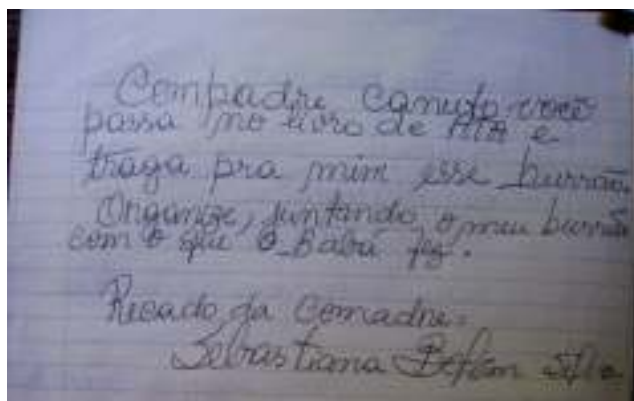 Compadre Canuto você
passa no livro de ATA e
traga pra mim esse burrão.
Organize, juntando o meu burrão
com o que o Babá fez.
Recado da Comadre.
Sebastiana